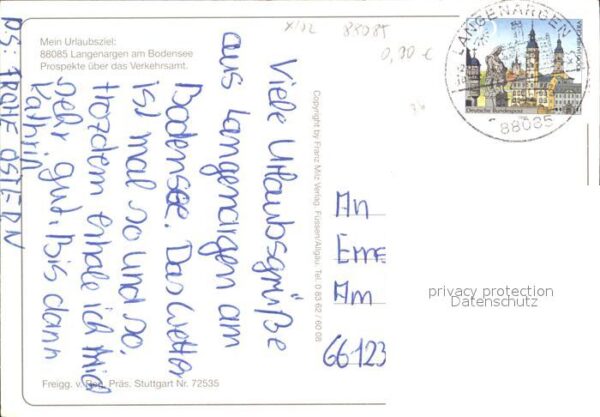 Mein Urlaubsziel:
88085 Langenargen am Bodensee
Prospekte über das Verkehrsamt.
Viele Urlaubsgrüße
aus Langenargen am
Bodensee. Das Wetter
ist mal so und so,
trotzdem erhole ich mich
sehr gut. Bis dann
Kathrin
P.S. FROHE OSTERN
Freigg. v. Reg. Präs. Stuttgart Nr. 72535
Copyright by Franz Milz Verlag, Füssen/Allgäu, Tel. 0 83 62 / 60 08
X/02 88085
0,90 €
LANGENARGEN
88085
Deutsche Bundespost
An
Am
66123
privacy protection
Datenschutz